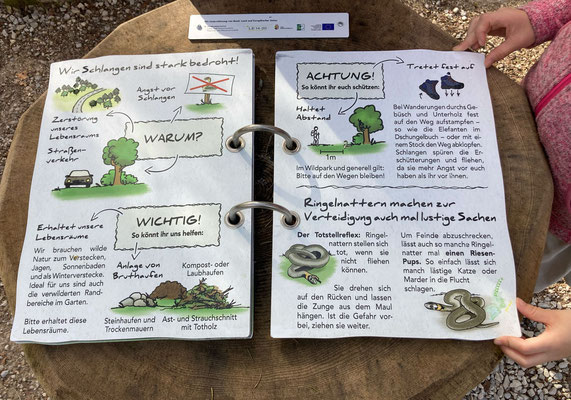 Wir Schlangen sind stark bedroht!
Angst vor
Schlangen
Zerstörung
unseres
Lebensraums
WARUM?
Straßen-
verkehr
WICHTIG!
So könnt ihr uns helfen:
Erhaltet unsere
Lebensräume
Wir brauchen wilde
Natur zum Verstecken,
Jagen, Sonnenbaden
und als Winterverstecke.
Ideal für uns sind auch
die verwilderten Rand-
bereiche im Garten.
Bitte erhaltet diese
Lebensräume.
Anlage von
Bruthaufen
Kompost- oder
Laubhaufen
Steinhaufen und
Trockenmauern
Ast- und Strauchschnitt
mit Totholz
ACHTUNG!
So könnt ihr euch schützen:
Haltet
Abstand
1 m
Im Wildpark und generell gilt:
Bitte auf den Wegen bleiben!
Tretet fest auf
Bei Wanderungen durchs Ge-
büsch und Unterholz fest
auf den Weg aufstampfen –
so wie die Elefanten im
Dschungelbuch – oder mit ei-
nem Stock den Weg abklopfen.
Schlangen spüren die Er-
schütterungen und fliehen,
da sie mehr Angst vor euch
haben als ihr vor ihnen.
Ringelnattern machen zur
Verteidigung auch mal lustige Sachen
Der Totstellreflex: Ringel-
nattern stellen sich
tot, wenn sie
nicht fliehen
können.
Sie drehen sich
auf den Rücken und lassen
die Zunge aus dem Maul
hängen. Ist die Gefahr vor-
bei, ziehen sie weiter.
Um Feinde abzuschrecken,
lässt auch so manche Ringel-
natter mal einen Riesen-
Pups. So einfach lässt sich
manch lästige Katze oder
Marder in die Flucht
schlagen.